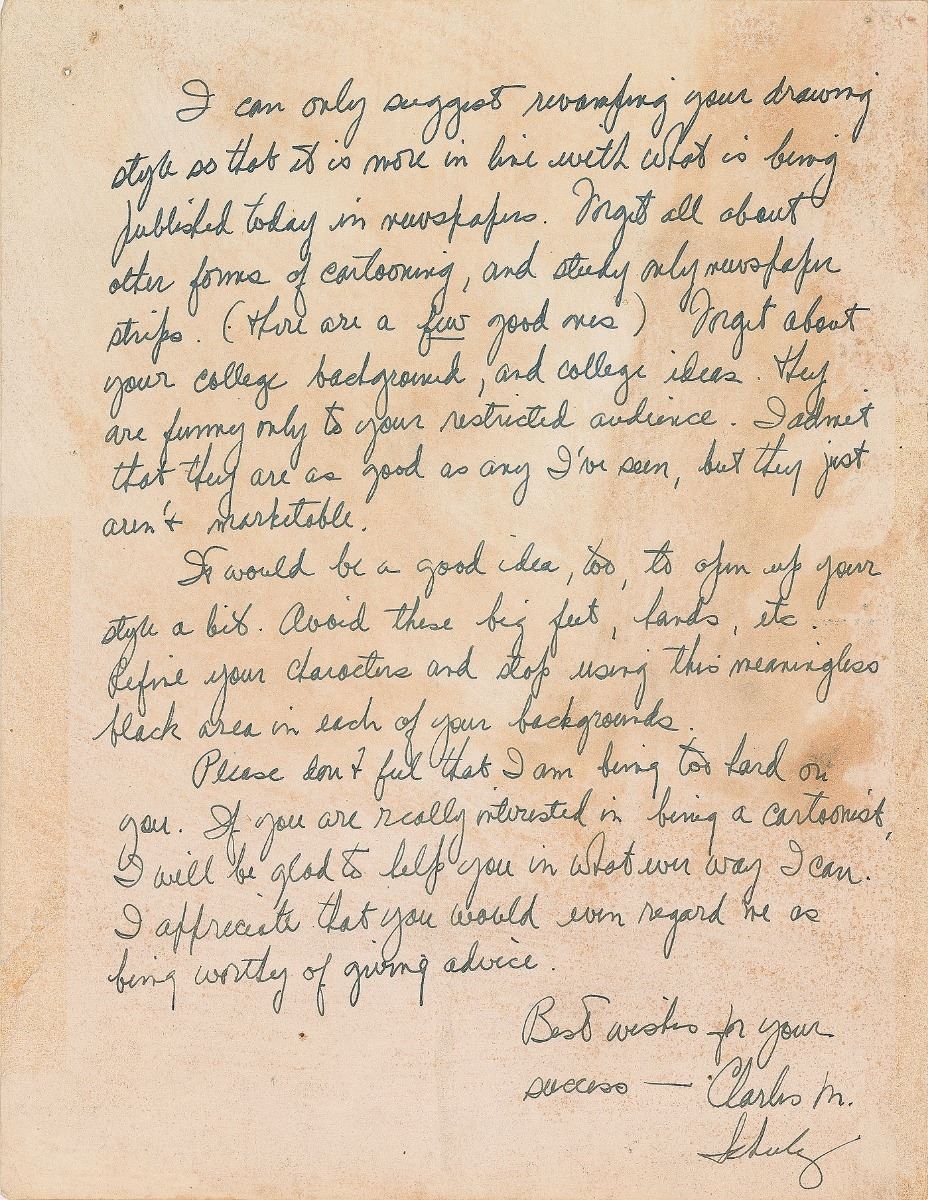 I can only suggest revamping your drawing
style so that it is more in line with what is being
published today in newspapers. Forget all about
other forms of cartooning, and study only newspaper
strips. (there are a few good ones) Forget about
your college background, and college ideas. They
are funny only to your restricted audience. I admit
that they are as good as any I've seen, but they just
aren't marketable.
It would be a good idea, too, to open up your
style a bit. Avoid these big feet, hands, etc.
Refine your characters and stop using this meaningless
black area in each of your backgrounds.
Please don't feel that I am being too hard on
you. If you are really interested in being a cartoonist,
I will be glad to help you in what ever way I can.
I appreciate that you would even regard me as
being worthy of giving advice.
Best wishes for your
success — Charles M.
Schulz